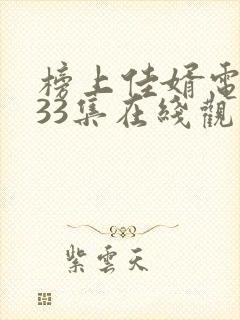 榜上佳婿電
33集在綫觀
紫雲天